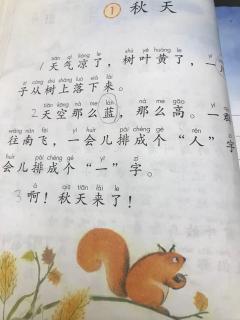 ① 秋天
tiān qì liáng le shù yè huáng le
1天气凉了，树叶黄了，一
zi cóng shù shàng luò xià lái
子从树上落下来。
tiān kōng nà me lán nà me gāo
2天空那么蓝，那么高。一
wǎng nán fēi yí huì er pái chéng gè rén zì
往南飞，一会儿排成个“人”字
huì er pái chéng gè yī zì
会儿排成个“一”字。
ā qiū tiān lái le
3啊！秋天来了！